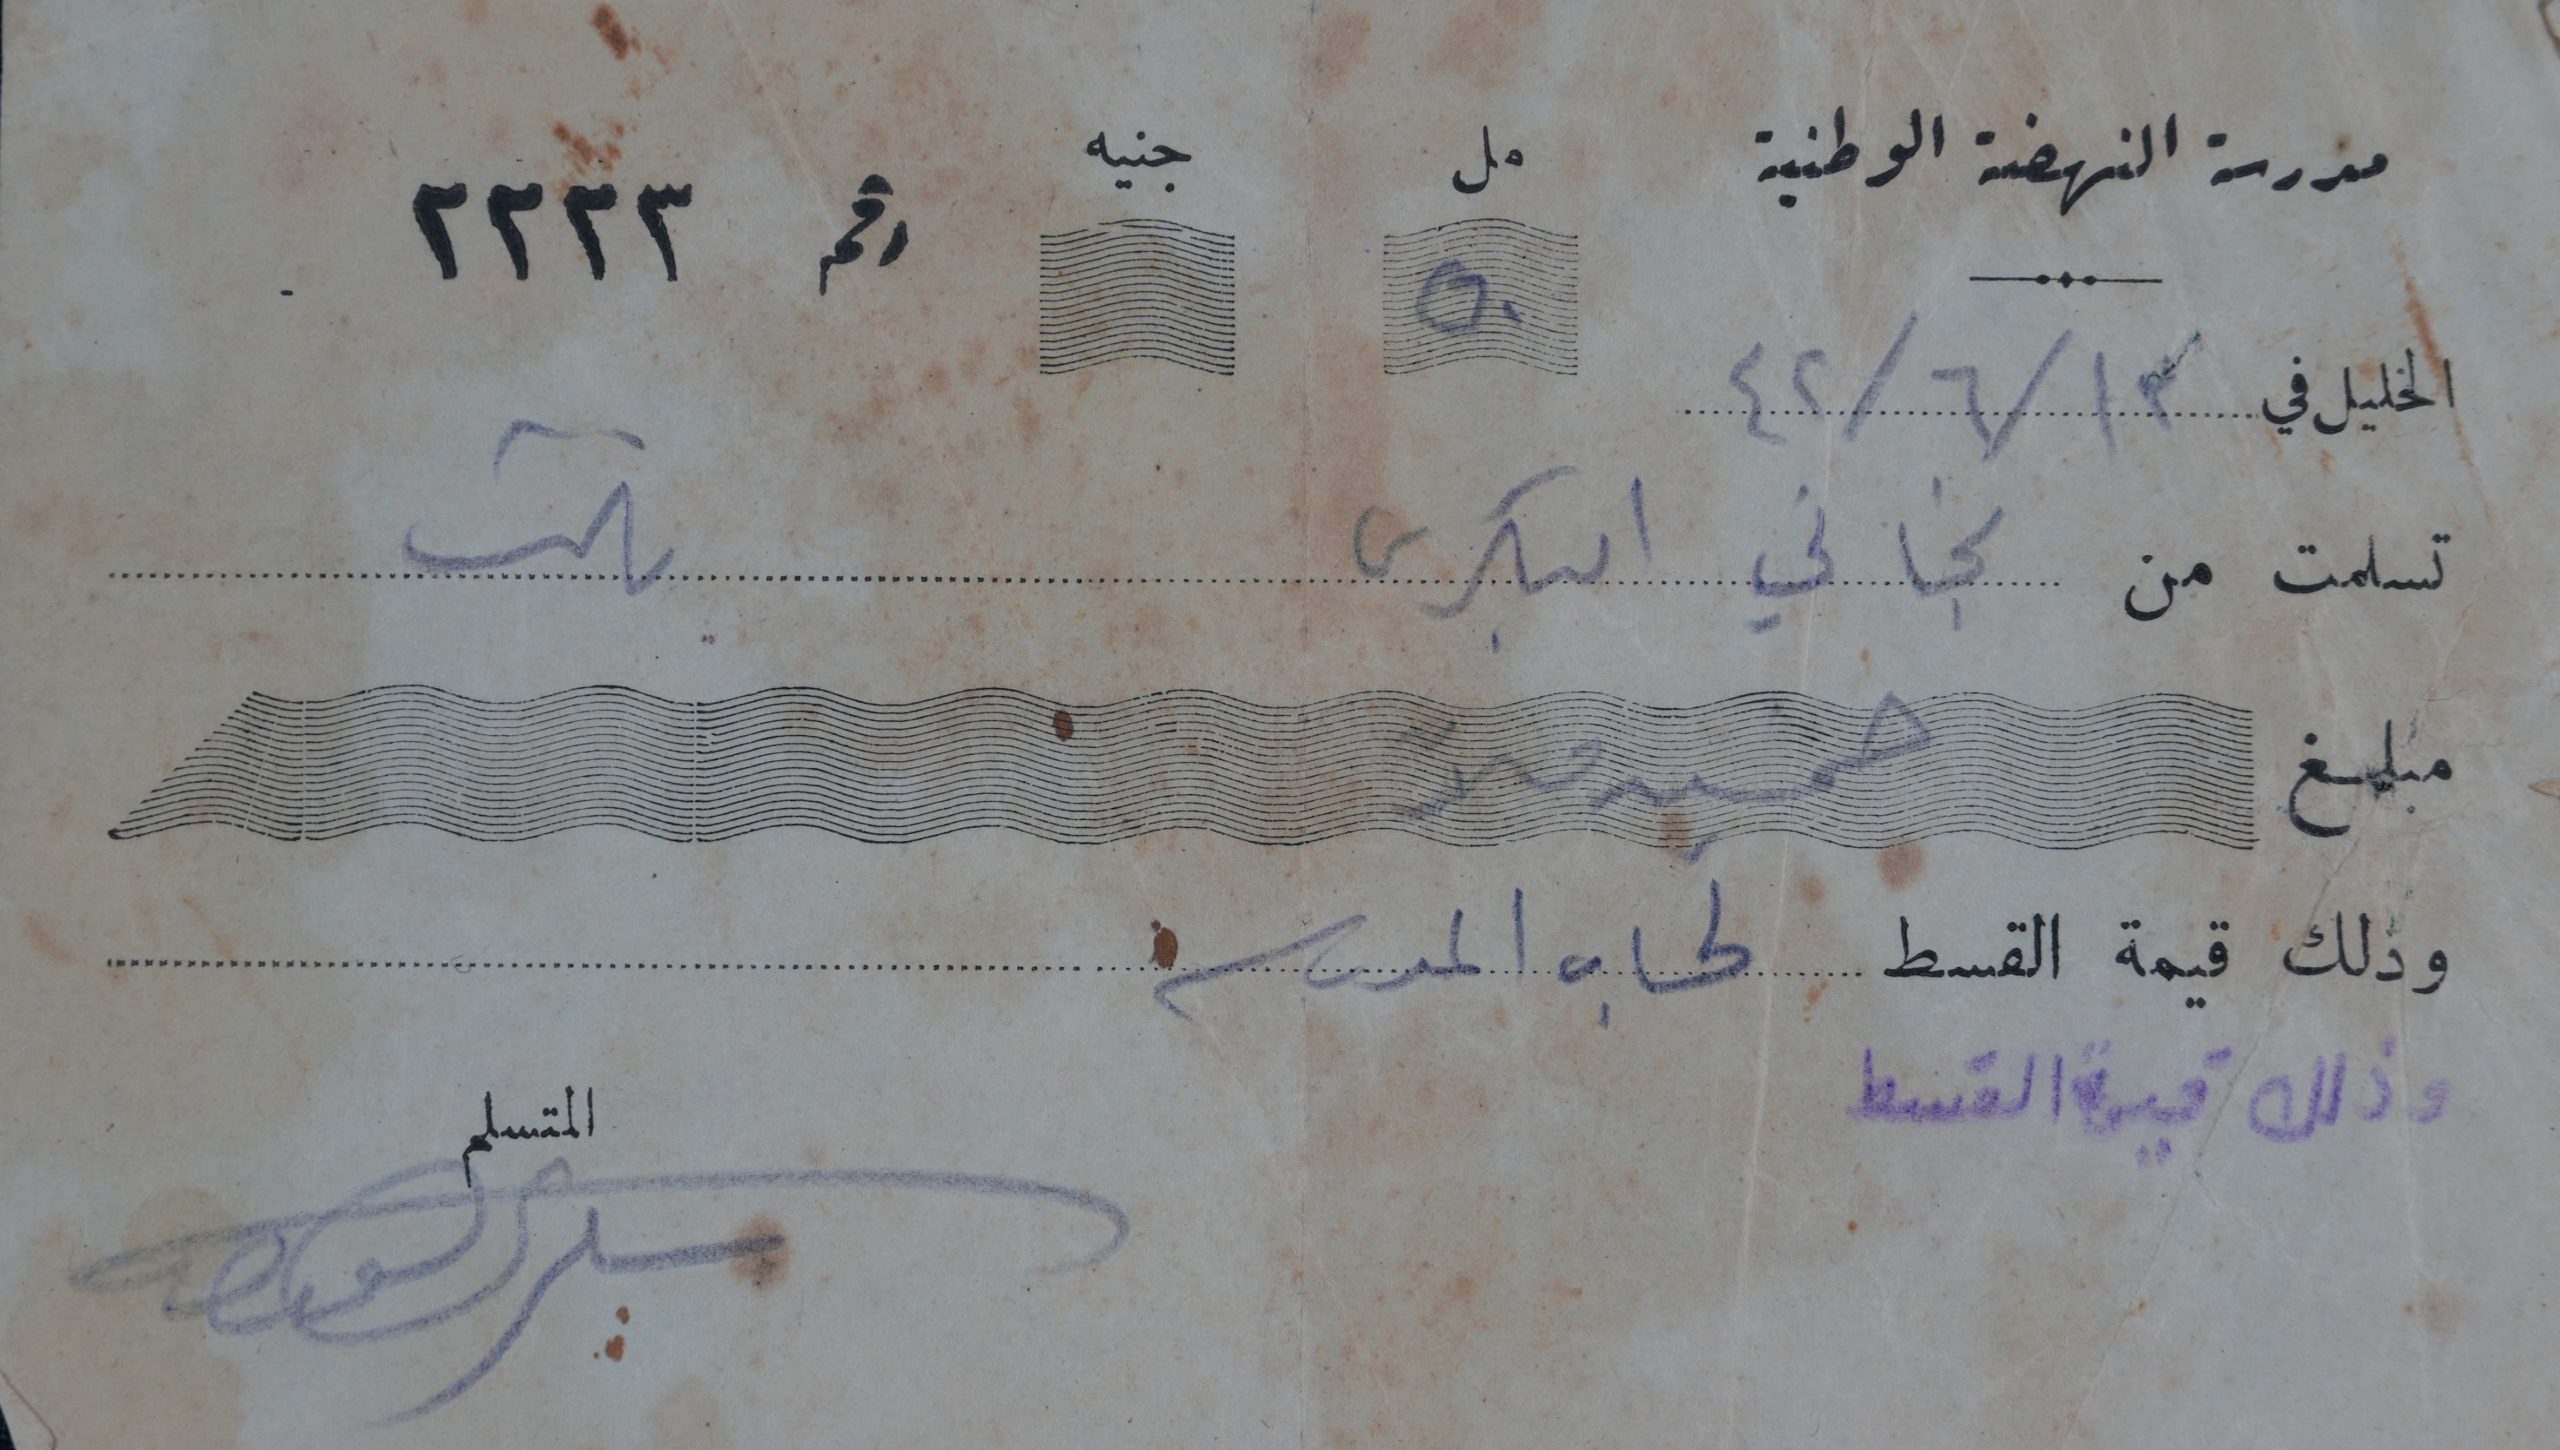 مدرسة النهضة الوطنية
مل جنيه
رقم ٢٢٢٣
٥٠
الخليل في ١٣/٦/٤٢
تسلمت من نجاتي البكري
مبلغ خمسين ملا
وذلك قيمة القسط لحساب المدرسة
وذلك قيمة القسط
المتسلم